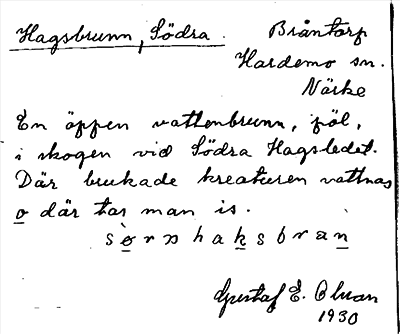 Hagsbrunn, Södra. Bråntorp
Hardemo sn.
Närke
En öppen vattenbrunn, pöl,
i skogen vid Södra Hagsledet.
Där brukade kreaturen vattnas
o där tar man is.
Gustaf E.
1930